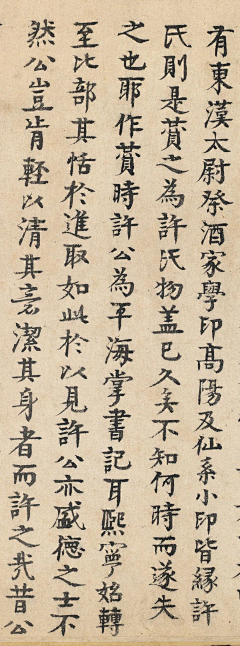 有東漢太尉祭酒家學印高陽及仙系小印皆緣許
氏則是蓂之為許氏物蓋已久矣不知何時而遂失
之也耶作蓂時許公為平海掌書記耳熙寧始轉
至比部其恬於進取如此於以見許公亦盛德之士不
然公豈肯輕以清其音潔其身者而許之哉昔公